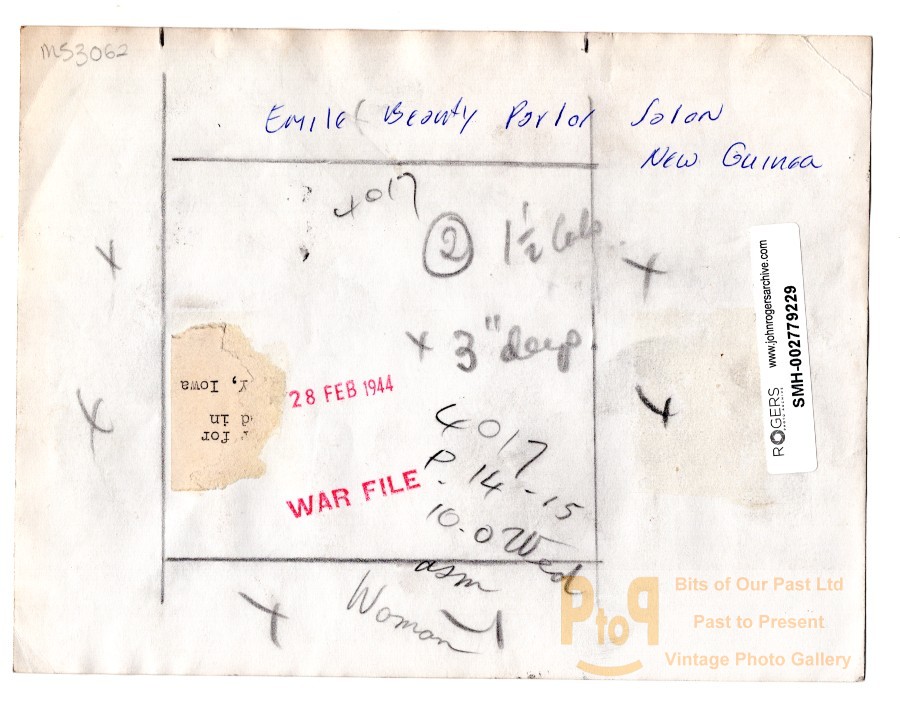 MS3062
Emile Beauty Parlor Salon
New Guinea
4017
2 1½ Cols
x 3" deep.
28 FEB 1944
Y, Iowa
d in
for
4017
P. 14-15
10.0 Wed
asm
WAR FILE
Woman
ROGERS
www.johnrogersarchive.com
SMH-002779229
PtoP
Bits of Our Past Ltd
Past to Present
Vintage Photo Gallery